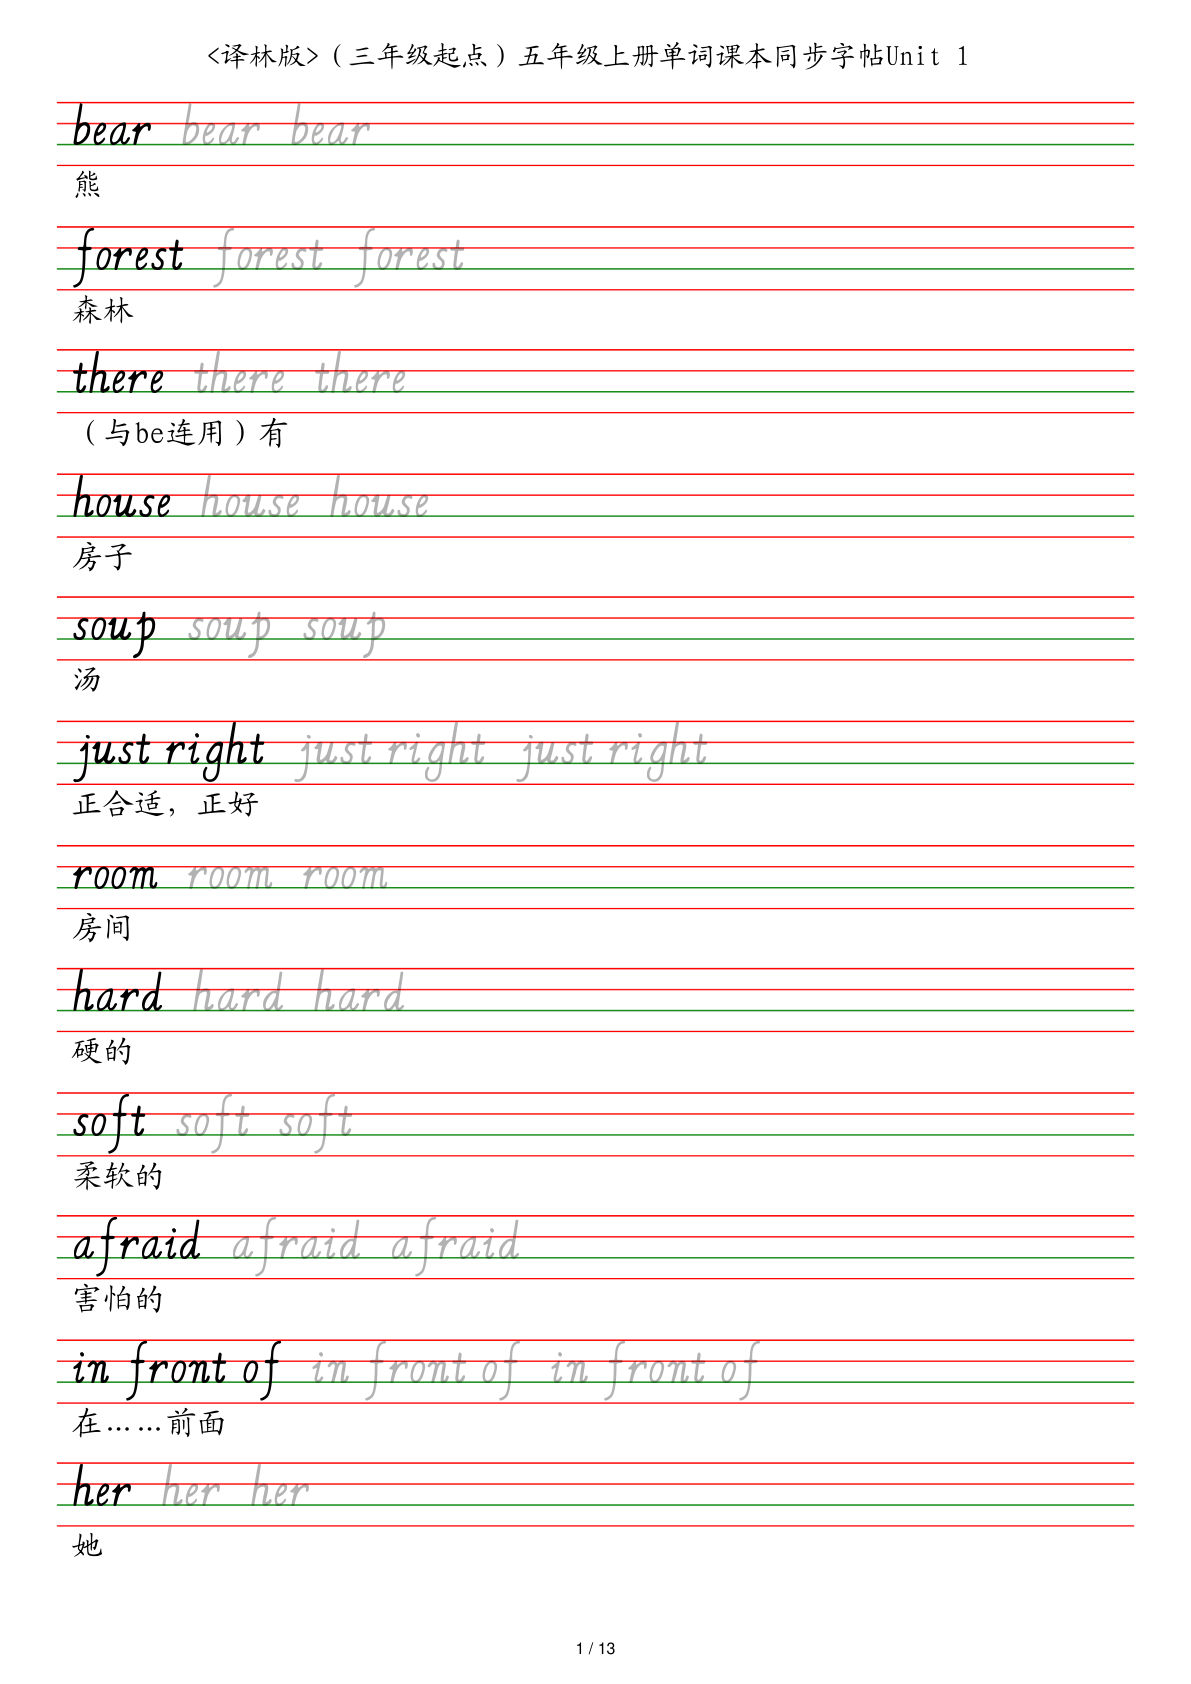 <译林版>（三年级起点）五年级上册单词课本同步字帖Unit 1
bear bear bear
熊
forest forest forest
森林
there there there
（与be连用）有
house house house
房子
soup soup soup
汤
just right just right just right
正合适，正好
room room room
房间
hard hard hard
硬的
soft soft soft
柔软的
afraid afraid afraid
害怕的
in front of in front of in front of
在……前面
her her her
她
1 / 13